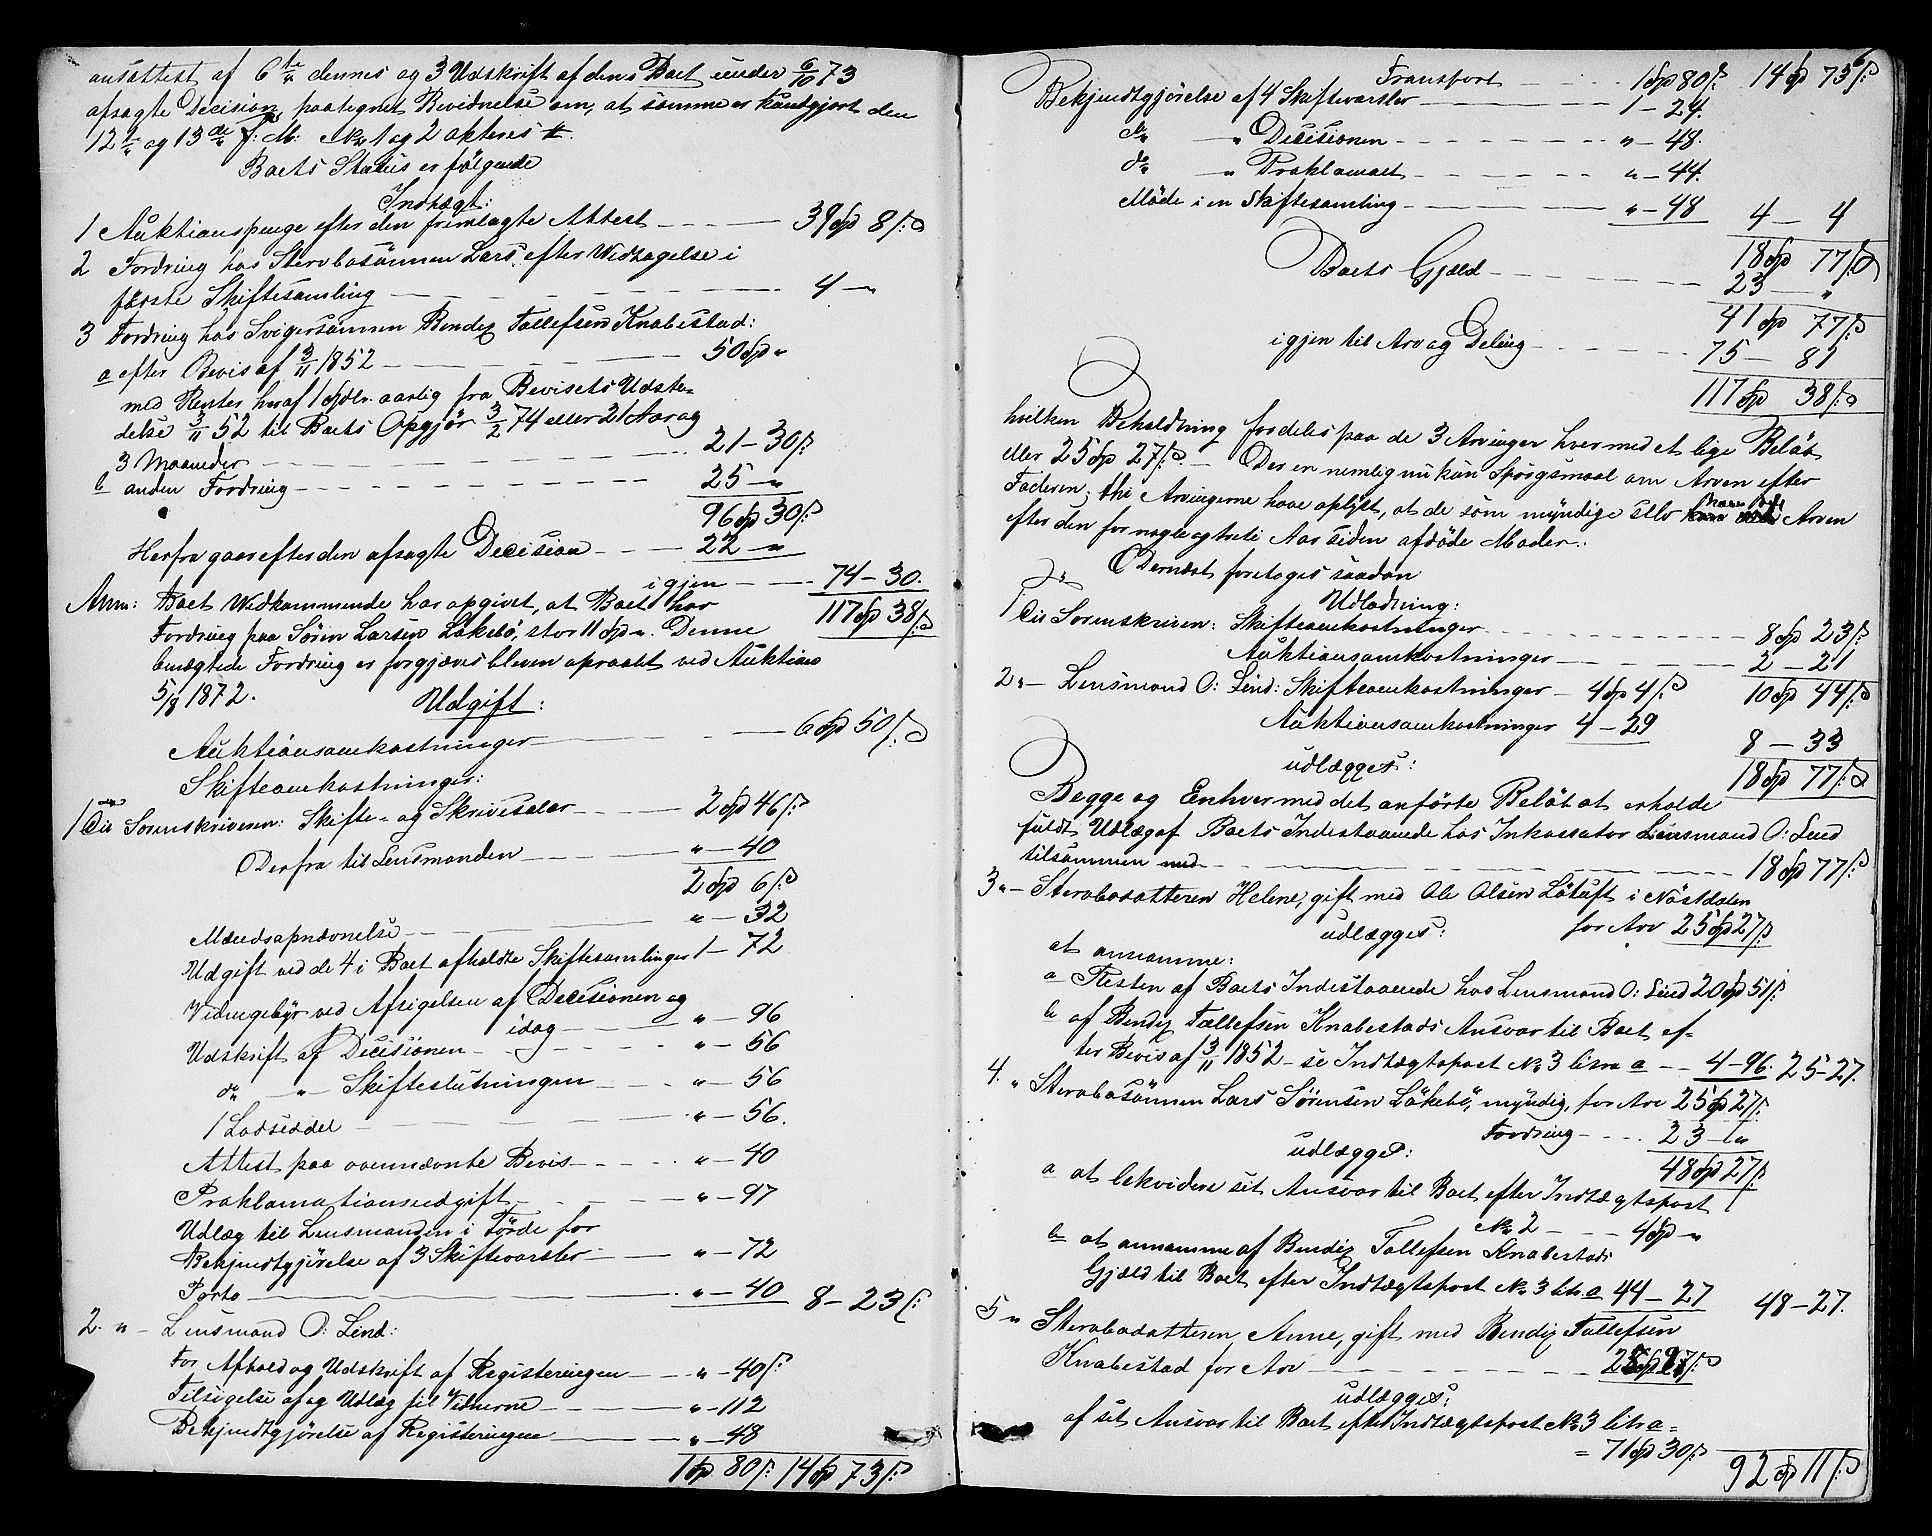 ansattest af 6te dennes og 3 Udskrift af den i Boet under 6/10 73
afsagte Decision, paategnet Bevidnelse om, at samme er kundgjort den
12te og 13de f: M: No 1 og 2 akteres
Boets Status er følgende
Indtægt:
1 Auktionspenge efter den fremlagte Attest 39 Sp 8 ſ:
2 Fordring hos Sterbosønnen Lars, efter Vedtagelse i
første Skiftesamling 4 - "
3 Fordring hos Svigersønnen Bendix Tollefsen Knabestad:
a efter Bevis af 3/11 1852 50 Sp "
med Renter heraf 1 Spdlr. aarlig fra Bevisets Udste-
delse 3/11 52 til Boets Opgjør 3/2 74 eller 21 Aar og
3 Maaneder 21 - 30 ſ:
b anden Fordring 25 - "
96 Sp 30 ſ:
Herfra gaar efter den afsagte Decision 22 - "
igjen 74 - 30.
117 Sp 38 ſ:
Anm: Boet Vedkommende har opgivet, at Boet har
Fordring paa Søren Larsen Løkebø, stor 11 Sp ". Denne
benægtede Fordring er forgjæves bleven opraabt ved Auktion
5/8 1872.
Udgift:
Auktionsomkostninger 6 Sp 50 ſ:
Skifteomkostninger:
1 Til Sorenskriveren: Skifte- og Skrivesalær 2 Sp 46 ſ:
Derfra til Lensmanden " - 40
2 Sp 6 ſ:
Mændsopnævnelse " - 32
Udgift ved de 4 i Boet afholdte Skiftesamlinger 1 - 72
Vidnegebyr ved Afsigelsen af Decisionen og
idag " - 96
Udskrift af Decisionen " - 56
do " Skifteslutningen " - 56
1 Lodseddel " - 56.
Attest paa ovennævnte Bevis " - 40
Proklamationsudgift " - 97
Udlæg til Lensmanden i Førde for
Bekjendtgjørelse af 3 Skiftevarsler " - 72
Porto " - 40 8 - 23 ſ:
2 " - Lensmand O: Lind:
For Afhold og Udskrift af Registeringen " - 40 ſ:
Tilsigelse af og Udlæg til Vidnerne " - 112
Bekjendtgjørelse af Registeringen " - 48
1 Sp 80 ſ: 14 Sp 73 ſ:
Transport 1 Sp 80 ſ: 14 Sp 73 ſ:
Bekjendtgjørelse af 4 Skiftevarsler 1 - 24.
do " Decisionen " - 48.
do " Proklamaet " - 44.
Møde i en Skiftesamling " - 48 4 - 4
18 Sp 77 ſ:
Boets Gjæld 23 "
41 Sp 77 ſ:
igjen til Arv og Deling 75 - 81
117 Sp 38 ſ:
hvilken Beholdning fordeles paa de 3 Arvinger hver med et lige Beløb
eller 25 Sp 27 ſ: - Der er nemlig nu kun Spørgsmaal om Arven efter
Faderen; thi Arvingerne have oplyst, at de som myndige selv have Arven
efter den for nogle og treti Aar siden afdøde Moder:
Dernæst foretoges saadan
Udlodning:
1 Til Sorenskriven: Skifteomkostninger 8 Sp 23 ſ:
Auktionsomkostninger 2 - 21
2 " - Lensmand O: Lind: Skifteomkostninger - 4 Sp 4 ſ: 10 Sp 44 ſ:
Auktionsomkostninger 4 - 29
8 - 33
udlægges: 18 Sp 77 ſ:
Begge og Enhver med det anførte Beløb at erholde
fuldt Udlæg af Boets Indestaaende hos Inkassator Lensmand O: Lind
tilsammen med 18 Sp 77 ſ:
3 " - Sterbodatteren Helene, gift med Ole Olsen Løtuft i Nøstdalen
udlægges: for Arv 25 Sp 27 ſ:
at annamme:
a Resten af Boets Indestaaende hos Lensmand O: Lind 20 Sp 51 ſ:
b af Bendix Tollefsen Knabestads Ansvar til Boet ef-
ter Bevis af 3/11 1852 - se Indtægtspost No 3 litra a 4 - 96. 25 - 27.
4. " Sterbosønnen Lars Sørensen Løkebø, myndig, for Arv 25 Sp 27 ſ:
Fordring 23 - "
udlægges: 48 Sp 27 ſ:
a at lekvidere sit Ansvar til Boet efter Indtægtspost
No 2 4 Sp "
b at annamme af Bendix Tollefsen Knabestads
Gjæld til Boet efter Indtægtspost No 3 litr. a 44 - 27 48 - 27.
5 " Sterbodatteren Anne, gift med Bendix Tollefsen
Knabestad for Arv 25 Sp 27 ſ:
udlægges:
af sit Ansvar til Boet efter Indtægtspost No 3 litr a =
= 71 Sp 30 ſ: 92 Sp 11 ſ: